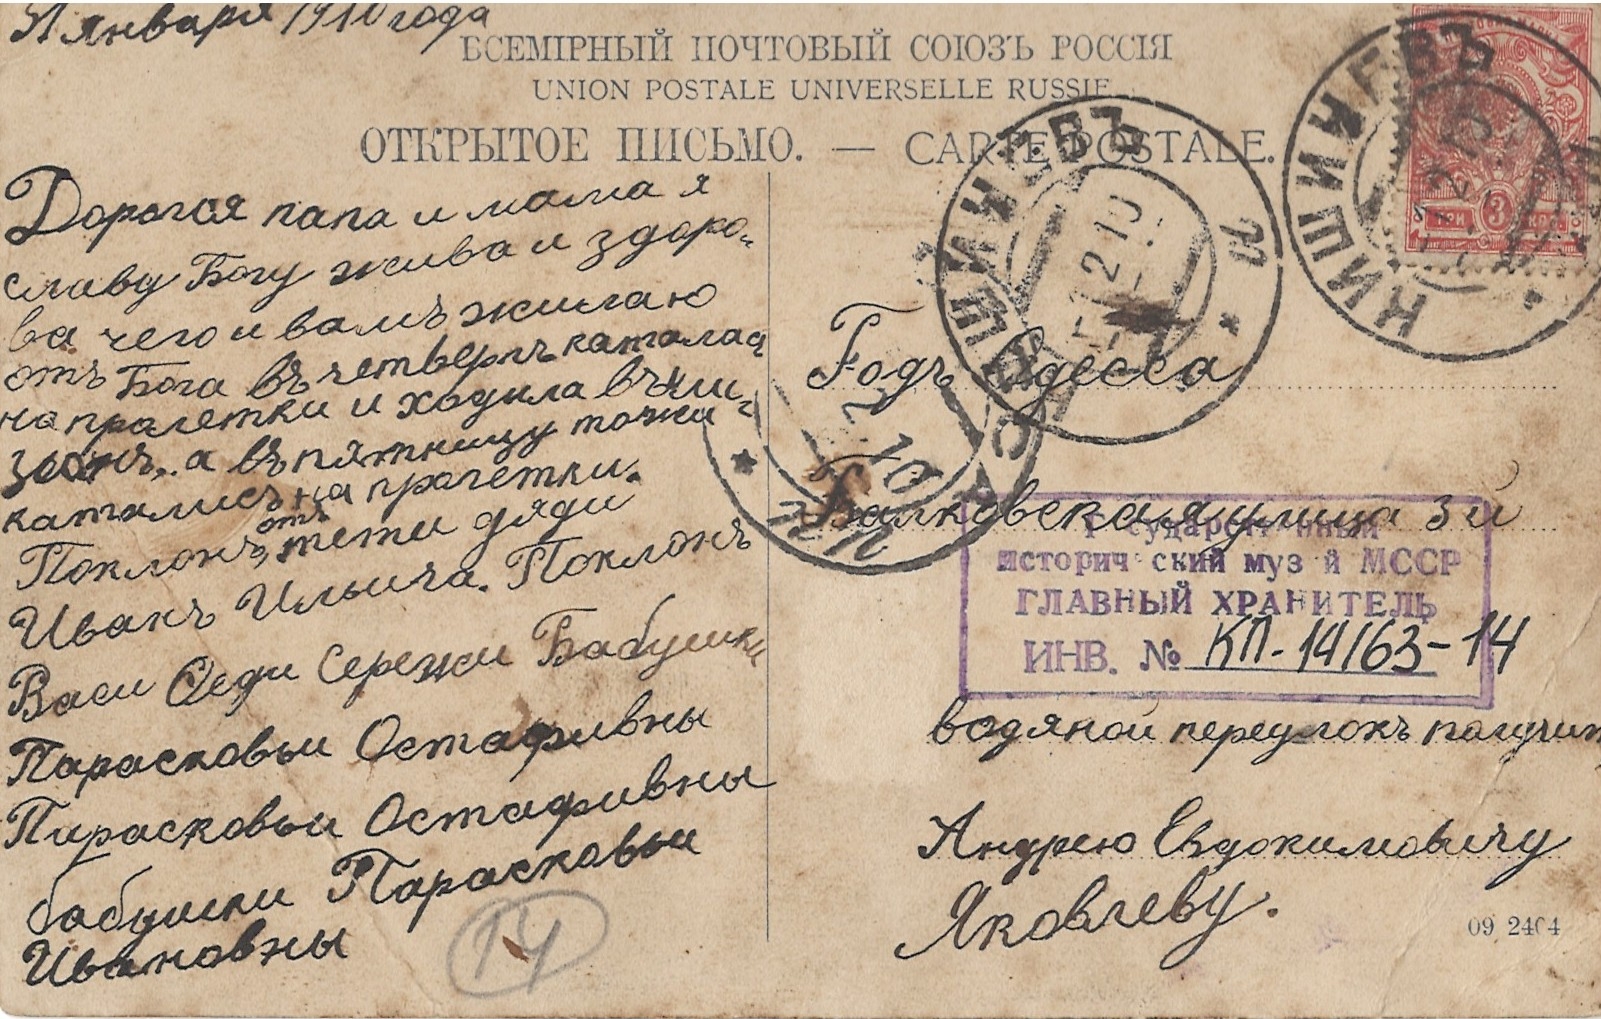 31 января 1910 года
ВСЕМІРНЫЙ ПОЧТОВЫЙ СОЮЗЪ РОССІЯ
UNION POSTALE UNIVERSELLE RUSSIE
ОТКРЫТОЕ ПИСЬМО. — CARTE POSTALE.
Дорогая папа и мама я
славу Богу жива и здоро-
ва чего и вамъ жилаю
отъ Бога въ четвергъ каталас
на пролетки и ходила въ
а въ пятницу тожи
катались на пролетки.
Поклонъ отъ тети дяди
Иванъ Ильича. Поклонъ
Васи Феди Сережи Бабушки
Парасковьи Остафивны
Пирасковьи Остафивны
бабушки Парасковьи
Ивановны
14
КИШИНЕВЪ
2 10
КИШИНЕВЪ
2 10
ОДЕССА
2 10
ТРИ 3 КОП.
Годъ Одесса
Балковская улица 3 й
водяной переулокъ палучит
Андрею Евдокимовичу
Яковлеву.
Г сударст нный
историч ский муз й МССР
ГЛАВНЫЙ ХРАНИТЕЛЬ
ИНВ. № КП-14163-14
09 2404